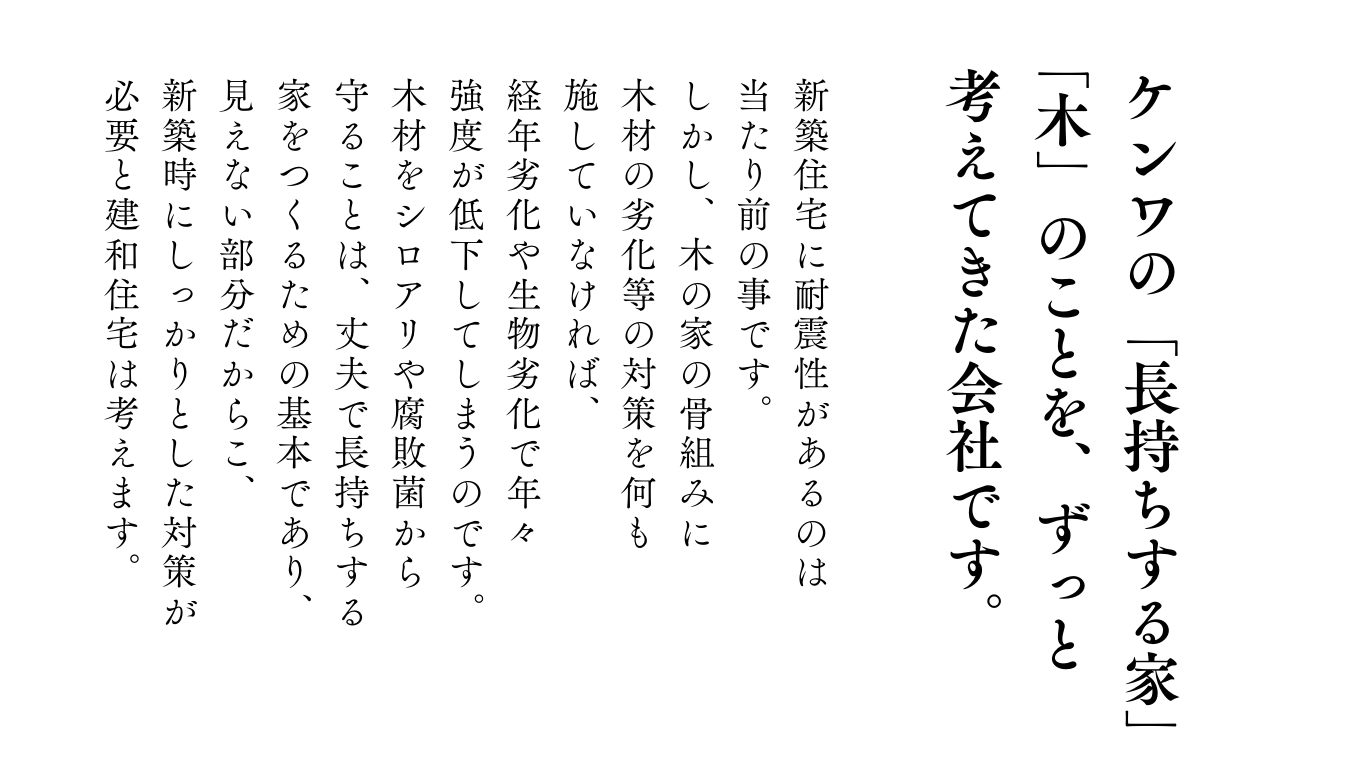 ケンワの「長持ちする家」
「木」のことを、ずっと
考えてきた会社です。
新築住宅に耐震性があるのは
当たり前の事です。
しかし、木の家の骨組みに
木材の劣化等の対策を何も
施していなければ、
経年劣化や生物劣化で年々
強度が低下してしまうのです。
木材をシロアリや腐敗菌から
守ることは、丈夫で長持ちする
家をつくるための基本であり、
見えない部分だからこ、
新築時にしっかりとした対策が
必要と建和住宅は考えます。